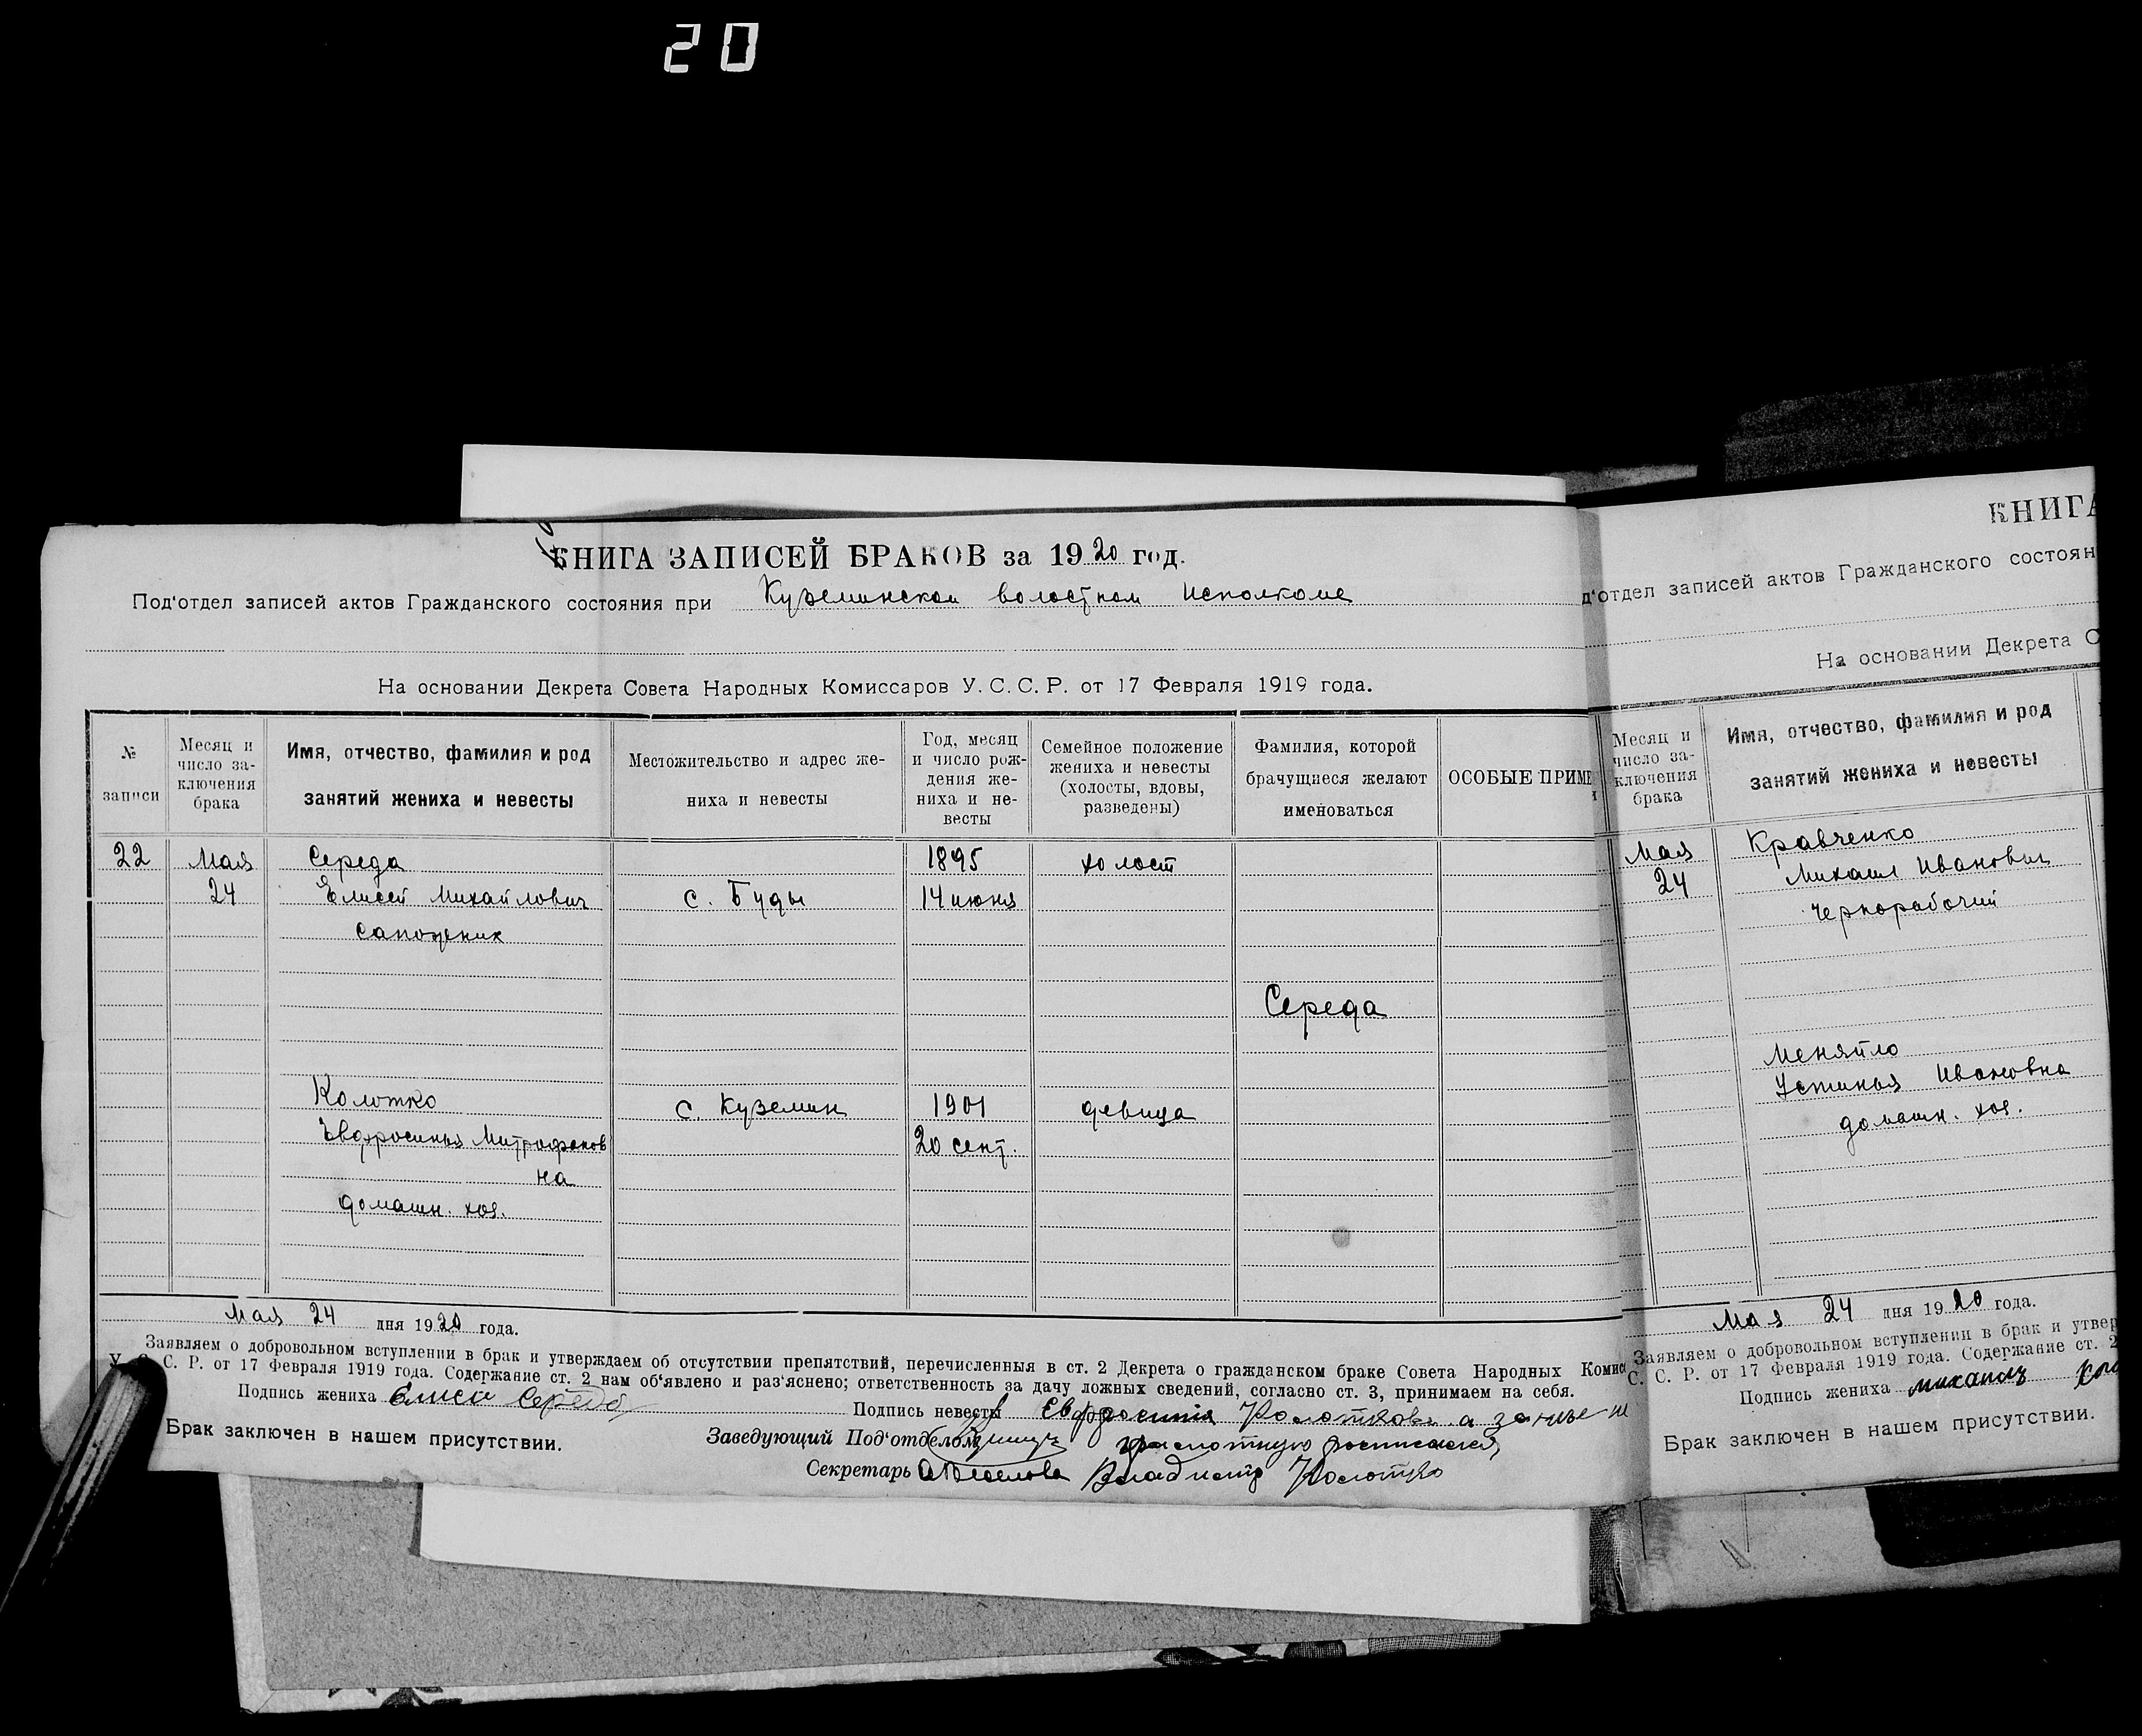 20
КНИГА ЗАПИСЕЙ БРАКОВ за 1920 год.
Под'отдел записей актов Гражданского состояния при Куземинском волостном Исполкоме
На основании Декрета Совета Народных Комиссаров У. С. С. Р. от 17 Февраля 1919 года.
№ записи
Месяц и число заключения брака
Имя, отчество, фамилия и род занятий жениха и невесты
Местожительство и адрес жениха и невесты
Год, месяц и число рождения жениха и невесты
Семейное положение жениха и невесты (холосты, вдовы, разведены)
Фамилия, которой брачущиеся желают именоваться
ОСОБЫЕ ПРИМЕ
22 Мая Середа 1895 холост
24 Елисей Михайлович с. Буды 14 июня
сапожник
Середа
Колотко с. Куземин 1901 девица
Евфросинья Митрофанов 20 сент.
на
домашн. хоз.
Мая 24 дня 1920 года.
Заявляем о добровольном вступлении в брак и утверждаем об отсутствии препятствий, перечисленныя в ст. 2 Декрета о гражданском браке Совета Народных Комисс
У. С. С. Р. от 17 Февраля 1919 года. Содержание ст. 2 нам об'явлено и раз'яснено; ответственность за дачу ложных сведений, согласно ст. 3, принимаем на себя.
Подпись жениха Елисей Середа Подпись невесты Евфросиния Колоткова а за нее н
Брак заключен в нашем присутствии. Заведующий Под'отделом грамотную росписался
Секретарь Владимир Колотко
КНИГА
д'отдел записей актов Гражданского состоян
На основании Декрета С
Месяц и число заключения брака
Имя, отчество, фамилия и род занятий жениха и невесты
Мая Кравченко
24 Михаил Иванович
Чернорабочий
Меняйло
Устинья Ивановна
домашн. хоз.
Мая 24 дня 1920 года.
Заявляем о добровольном вступлении в брак и утвер
С. С. Р. от 17 Февраля 1919 года. Содержание ст. 2
Подпись жениха михаилъ
Брак заключен в нашем присутствии.